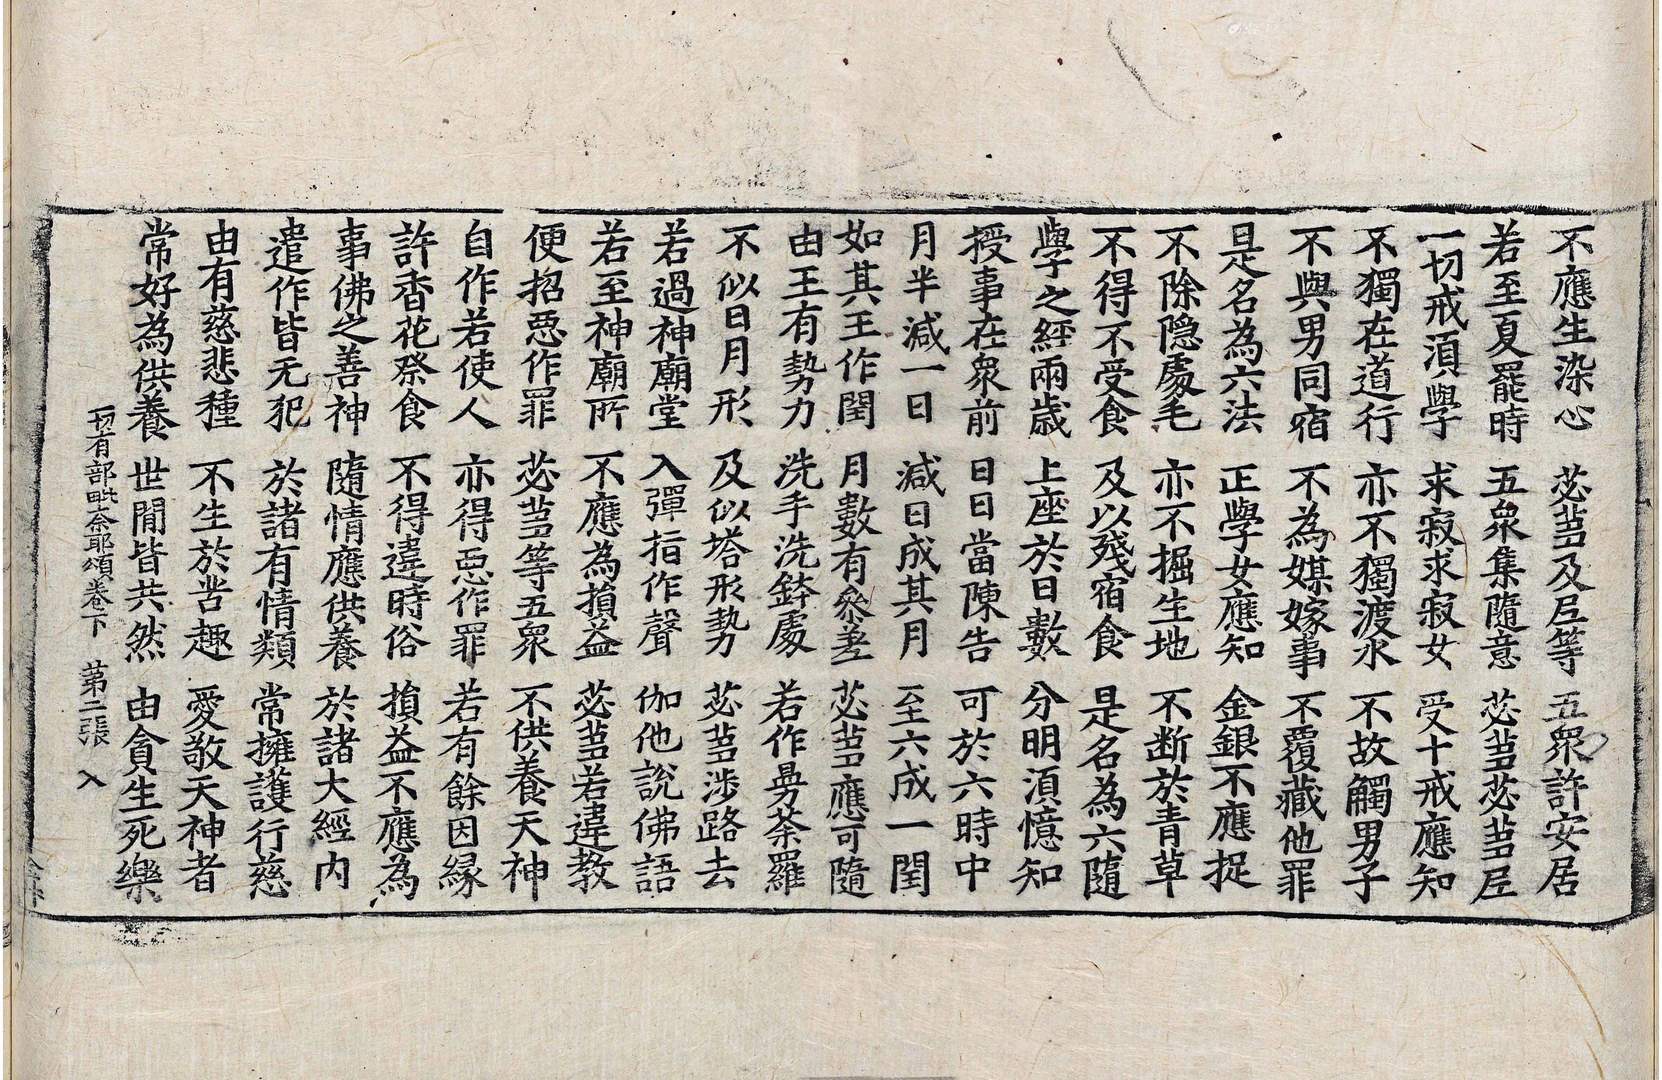 不應生染心 苾蒭及尼等 五衆許安居
若至夏罷時 五衆集隨意 苾蒭苾蒭尼
一切戒湏學 求寂求寂女 受十戒應知
不獨在道行 亦不獨渡水 不故觸男子
不與男同宿 不為媒嫁事 不覆藏他罪
是名為六法 正學女應知 金銀不應捉
不除隐處毛 亦不掘生地 不断於青草
不得不受食 及以殘宿食 是名為六隨
學之經兩歳 上座於日數 分明湏憶知
授事在衆前 日日當陳告 可於六時中
月半減一日 減日成其月 至六成一閏
如其王作閏 月數有參差 苾蒭應可隨
由王有勢力 洗手洗鉢處 若作曼荼羅
不似日月形 及似塔形勢 苾蒭涉路去
若過神廟堂 入彈指作聲 伽他說佛語
若至神廟所 不應為損益 苾蒭若違教
便招惡作罪 苾蒭等五衆 不供養天神
自作若使人 亦得惡作罪 若有餘因縁
許香花祭食 不得違時俗 損益不應為
事佛之善神 隨情應供養 於諸大經内
遣作皆无犯 於諸有情類 常擁護行慈
由有慈悲種 不生於苦趣 愛敬天神者
常好為供養 世閒皆共然 由貪生死樂
一切有部毗奈耶頌卷下 第二張 入